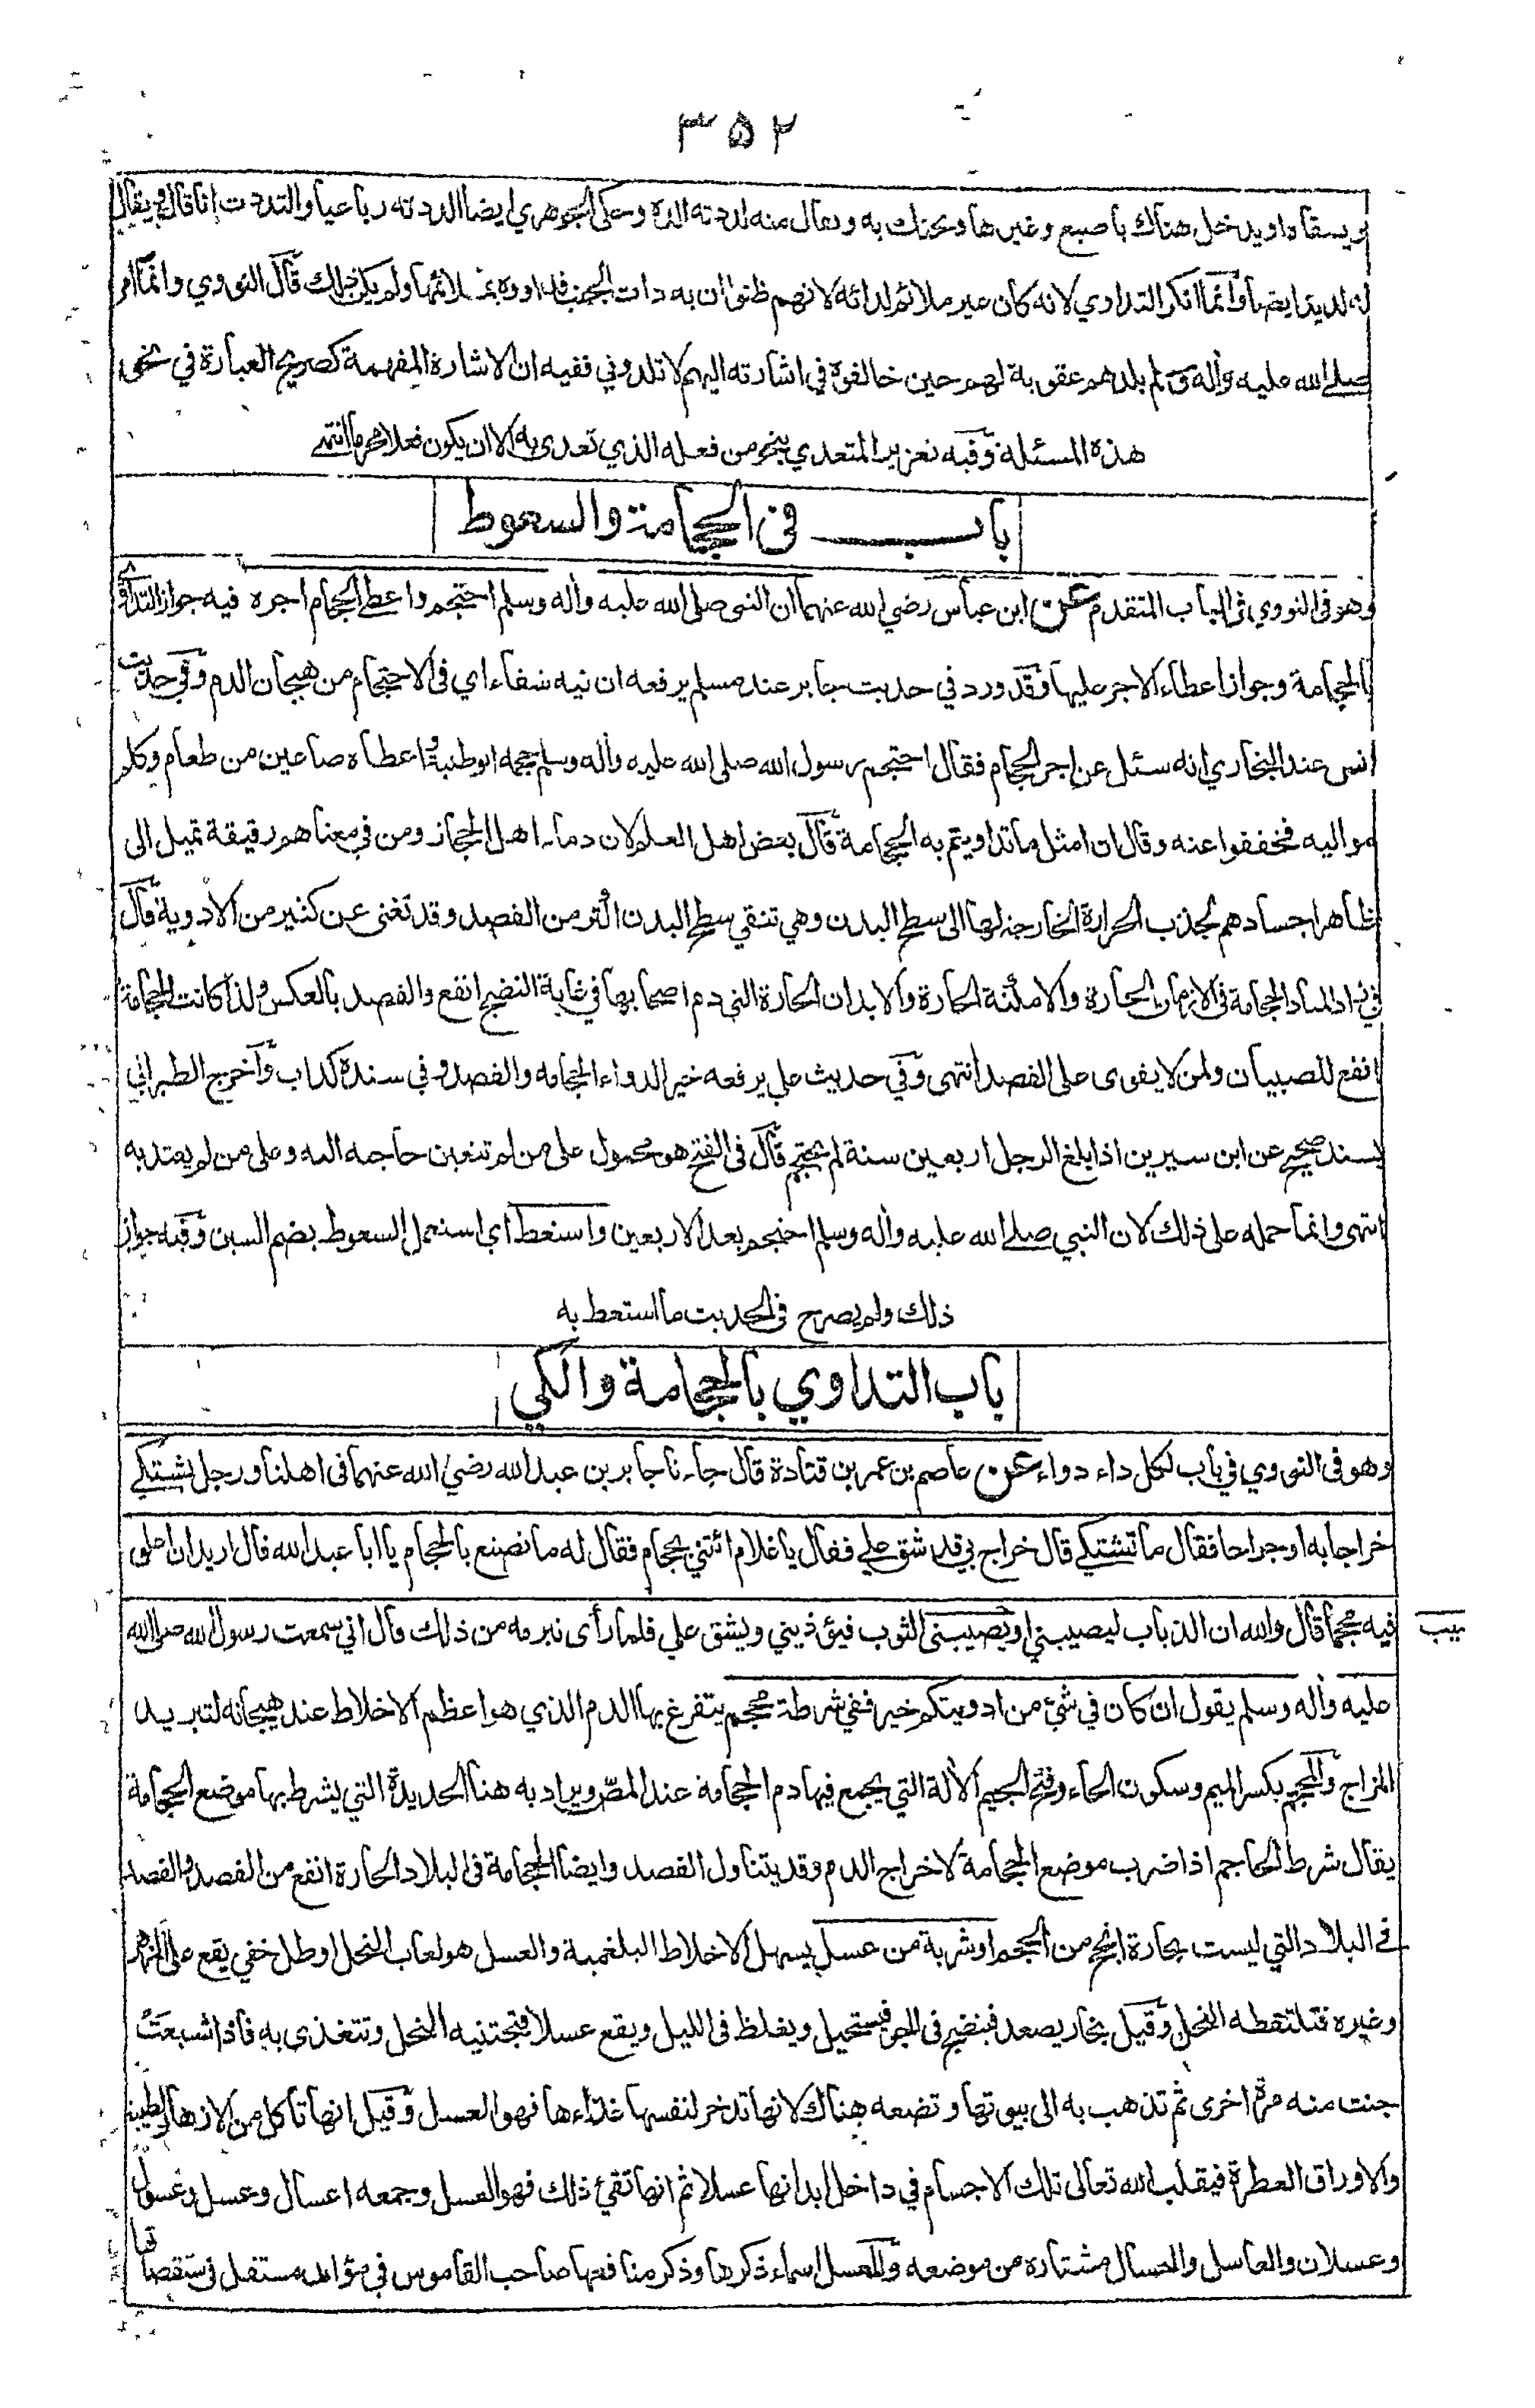 ٣٥٢
ويسقاه او يدخل هناك باصبع وغيرها ويحنك به ويقال منه لددته الده وحكى الجوهري ايضا الددته رباعيا والتددت انا قال ويقال
له لديد ايضا وانما انكر التداوي لانه كان غير ملائم لدائه لانهم ظنوا ان به ذات الجنب فداووه بما يلائمها ولم يكن ذلك قال النووي وانما امر
صلى الله عليه وآله وسلم بلدهم عقوبة لهم حين خالفوه في اشارته اليهم لا تلدوني ففيه ان الاشارة المفهمة كصريح العبارة في نحو
هذه المسئلة وفيه تعزير المتعدي بنحو من فعله الذي تعدى به الا ان يكون فعلا محرما انتهى
باب في الحجامة والسعوط
وهو في النووي في الباب المتقدم عن ابن عباس رضي الله عنهما ان النبي صلى الله عليه وآله وسلم احتجم واعطى الحجام اجره فيه جواز التداوي
بالحجامة وجواز اعطاء الاجر عليها وقد ورد في حديث جابر عند مسلم يرفعه ان فيه شفاء اي في الاحتجام من هيجان الدم وفي حديث
انس عند البخاري انه سئل عن اجر الحجام فقال احتجم رسول الله صلى الله عليه وآله وسلم حجمه ابو طيبة واعطاه صاعين من طعام وكلم
مواليه فخففوا عنه وقال ان امثل ما تداويتم به الحجامة قال بعض اهل العلم لان دماء اهل الحجاز ومن في معناهم رقيقة تميل الى
ظاهر اجسادهم لجذب الحرارة الخارجة لها الى سطح البدن وهي تنقي سطح البدن اكثر من الفصد وقد تغني عن كثير من الادوية قال
في زاد المعاد الحجامة في الازمان الحارة والامكنة الحارة والابدان الحارة التي دم اصحابها في غاية النضج انفع والفصد بالعكس ولذا كانت الحجامة
انفع للصبيان ولمن لا يقوى على الفصد انتهى وفي حديث علي يرفعه خير الدواء الحجامة والفصد وفي سنده كذاب واخرج الطبراني
بسند صحيح عن ابن سيرين اذا بلغ الرجل اربعين سنة لم يحتجم قال في الفتح هو محمول على من لم تتعين حاجته اليه وعلى من لم يعتد به
انتهى وانما حمله على ذلك لان النبي صلى الله عليه وآله وسلم احتجم بعد الاربعين واستعط اي استعمل السعوط بضم السين وفيه جواز
ذلك ولم يصرح في الحديث ما استعط به
باب التداوي بالحجامة والكي
وهو في النووي في باب لكل داء دواء عن عاصم بن عمر بن قتادة قال جاءنا جابر بن عبد الله رضي الله عنهما في اهلنا ورجل يشتكي
خراجا به او جراحا فقال ما تشتكي قال خراج بي قد شق علي فقال يا غلام ائتني بحجام فقال له ما تصنع بالحجام يا ابا عبد الله قال اريد ان اعلق
فيه محجما قال والله ان الذباب ليصيبني او يصيبني الثوب فيؤذيني ويشق علي فلما رأى تبرمه من ذلك قال اني سمعت رسول الله صلى الله
عليه وآله وسلم يقول ان كان في شيء من ادويتكم خير ففي شرطة محجم يتفرغ بها الدم الذي هو اعظم الاخلاط عند هيجانه لتبريد
المزاج والمحجم بكسر الميم وسكون الحاء وفتح الجيم الآلة التي يجمع فيها دم الحجامة عند المص ويراد به هنا الحديدة التي يشرط بها موضع الحجامة
يقال شرط الحاجم اذا ضرب موضع الحجامة لاخراج الدم وقد يتناول الفصد وايضا الحجامة في البلاد الحارة انفع من الفصد والفصد
في البلاد التي ليست بحارة انجح من الحجم او شربة من عسل يسهل الاخلاط البلغمية والعسل هو لعاب النحل او طل خفي يقع على الزهر
وغيره فتلتقطه النحل وقيل بخار يصعد فينضج في الجو فيستحيل ويغلظ في الليل ويقع عسلا فتجتنيه النحل وتتغذى به فاذا شبعت
جنت منه مرة اخرى ثم تذهب به الى بيوتها وتضعه هناك لانها تدخر لنفسها غذاءها فهو العسل وقيل انها تأكل من الازهار الطيبة
والاوراق العطرة فيقلب الله تعالى تلك الاجسام في داخل ابدانها عسلا ثم انها تقيئ ذلك فهو العسل وجمعه اعسال وعسل وعسول
وعسلان والعاسل والعسال مشتاره من موضعه وللعسل اسماء ذكرها وذكر منافعها صاحب القاموس في مؤلف مستقل